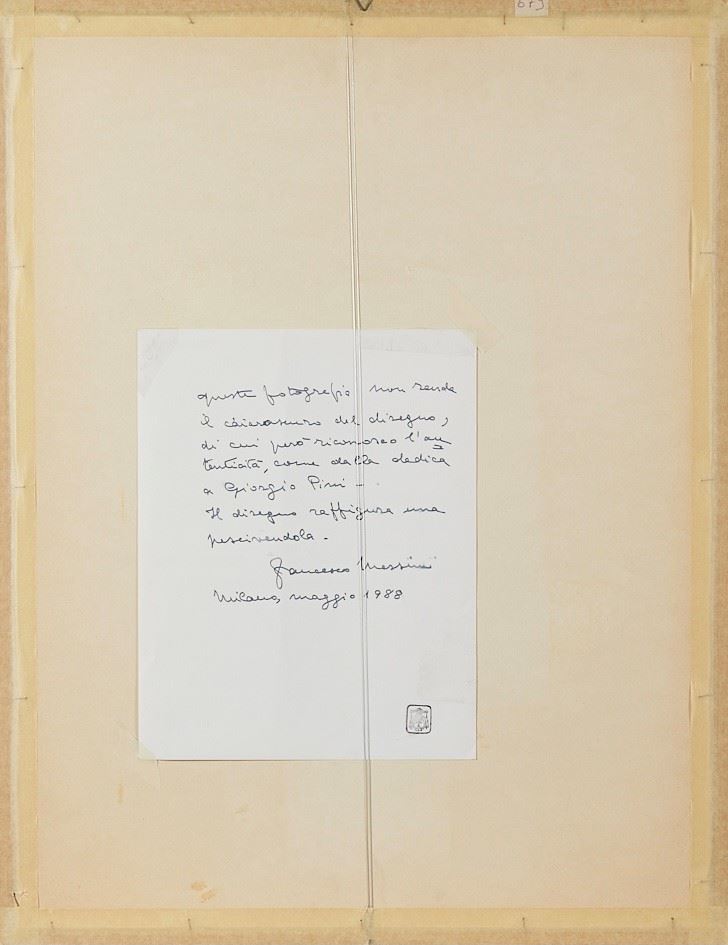 questa fotografia non rende
il chiaroscuro del disegno,
di cui però riconosco l'au
tenticità, come dalla dedica
a Giorgio Pini -
Il disegno raffigura una
pescivendola.
Francesco Messina
Milano, maggio 1988